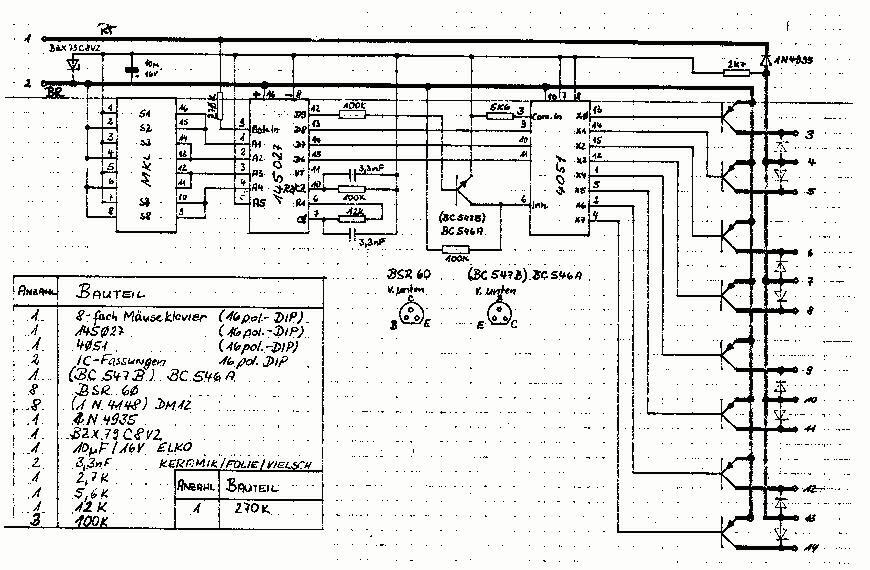 RT
1
BZX79C8V2
10µ
16V
2
BR
2K7
1N4935
270K
S1
S2
S3
S4
MKL
16
15
14
13
12
11
10
9
1
2
3
4
5
6
7
8
+ 16 - 8
Dat.in
A1
A2
A3
A4
A5
145027
D9
D8
D7
D6
VT
R2/C2
R1
C1
12
13
14
15
11
10
6
7
100K
3,3nF
100K
12K
3,3nF
(BC 547B)
BC 546A
100K
5K6
3
9
10
11
6
16 7 8
Com.in
Inh.
4051
X0
X1
X2
X3
X4
X5
X6
X7
13
14
15
12
1
5
2
4
3
4
5
6
7
8
9
10
11
12
13
14
BSR 60
v. unten
C
B E
(BC 547B) BC 546A
v. unten
B
E C
ANZAHL BAUTEIL
1 8-fach Mäuseklavier (16 pol.-DIP)
1 145027 (16 pol.-DIP)
1 4051 (16 pol.-DIP)
2 IC-Fassungen 16 pol. DIP
1 (BC 547B) BC 546A
8 BSR 60
8 (1N 4148) DM12
1 1N 4935
1 BZX 79 C8V2
1 10µF/16V ELKO
2 3,3nF KERAMIK/FOLIE/VIELSCH
1 2,7K
1 5,6K
1 12K
3 100K
ANZAHL BAUTEIL
1 270K